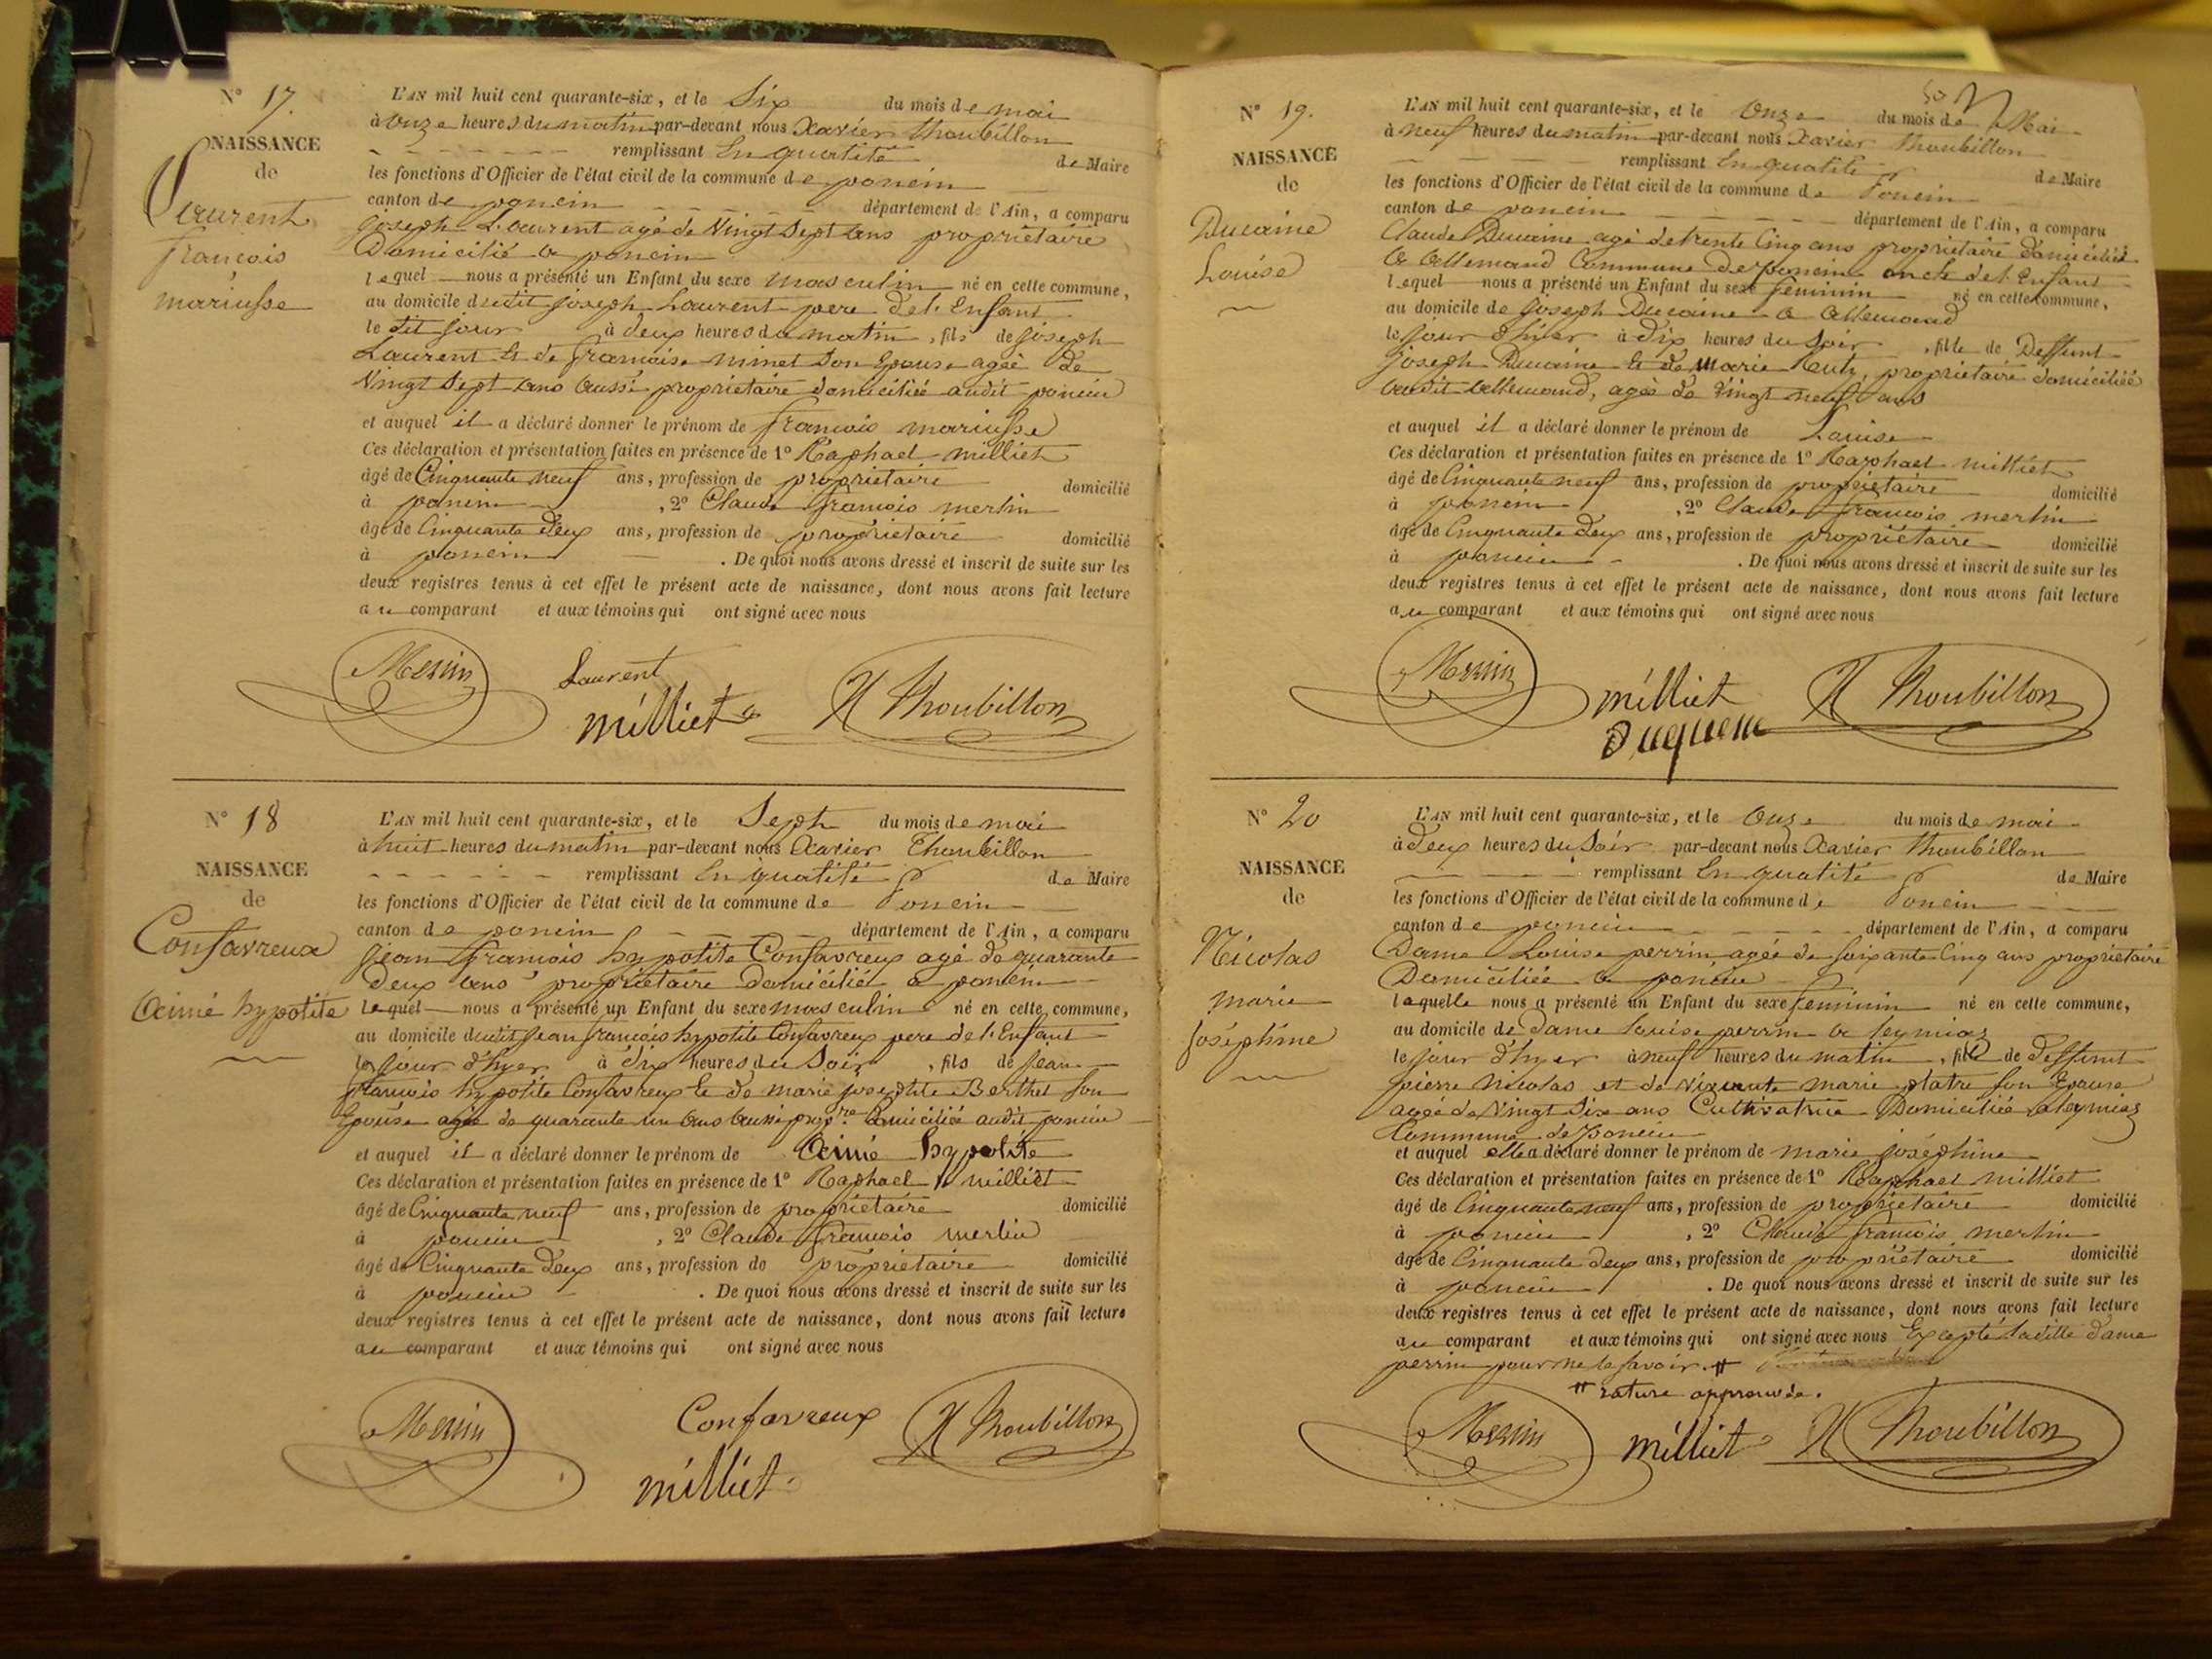 N° 17.
NAISSANCE
de
Laurent
françois
mariusse
L'AN mil huit cent quarante-six, et le Six du mois de mai
à onze heures du matin par-devant nous Xavier Thoubillon
remplissant En qualité de Maire
les fonctions d'Officier de l'état civil de la commune de poncin
canton de poncin département de l'Ain, a comparu
joseph Laurent agé de Vingt Sept ans propriétaire
Domicilié a poncin
lequel nous a présenté un Enfant du sexe masculin né en cette commune,
au domicile dudit joseph Laurent pere de l'Enfant
le dit jour à deux heures du matin, fils de joseph
Laurent Et de françoise minet Son Epouse agée de
Vingt Sept ans aussi propriétaire domiciliée audit poncin
et auquel il a déclaré donner le prénom de françois mariusse
Ces déclaration et présentation faites en présence de 1° Raphael milliet
âgé de Cinquante neuf ans, profession de propriétaire domicilié
à poncin, 2° Claude françois merlin
âgé de Cinquante Deux ans, profession de propriétaire domicilié
à poncin. De quoi nous avons dressé et inscrit de suite sur les
deux registres tenus à cet effet le présent acte de naissance, dont nous avons fait lecture
au comparant et aux témoins qui ont signé avec nous
Merlin Laurent X Thoubillon
milliet
N° 18
NAISSANCE
de
Confavreux
Aimé hypolite
L'AN mil huit cent quarante-six, et le Sept du mois de mai
à huit heures du matin par-devant nous Xavier Thoubillon
remplissant En qualité de Maire
les fonctions d'Officier de l'état civil de la commune de Poncin
canton de poncin département de l'Ain, a comparu
Jean françois hypolite Confavreux agé de quarante
deux ans propriétaire domicilié a poncin
lequel nous a présenté un Enfant du sexe masculin né en cette commune,
au domicile dudit Jean françois hypolite Confavreux pere de l'Enfant
le jour d'hyer à dix heures du Soir, fils de Jean
françois hypolite Confavreux Et de marie josephte Berthet son
Epouse agée de quarante un ans aussi propre. domiciliée audit poncin
et auquel il a déclaré donner le prénom de Aimé hypolite
Ces déclaration et présentation faites en présence de 1° Raphael milliet
âgé de Cinquante neuf ans, profession de propriétaire domicilié
à poncin, 2° Claude françois merlin
âgé de Cinquante Deux ans, profession de propriétaire domicilié
à poncin. De quoi nous avons dressé et inscrit de suite sur les
deux registres tenus à cet effet le présent acte de naissance, dont nous avons fait lecture
au comparant et aux témoins qui ont signé avec nous
Merlin Confavreux X Thoubillon
milliet
50
N° 19.
NAISSANCE
de
Ducaine
Louise
L'AN mil huit cent quarante-six, et le Onze du mois de Mai
à neuf heures du matin par-devant nous Xavier Thoubillon
remplissant En qualité de Maire
les fonctions d'Officier de l'état civil de la commune de Poncin
canton de poncin département de l'Ain, a comparu
Claude Ducaine agé de trente Cinq ans propriétaire domicilié
a allemand Commune de poncin oncle de l'Enfant
lequel nous a présenté un Enfant du sexe feminin né en cette commune,
au domicile de joseph Ducaine a allemand
le jour d'hier à Dix heures du Soir, fille de Deffunt
joseph Ducaine Et de Marie propriétaire domiciliée
audit allemand, agée de Vingt neuf ans
et auquel il a déclaré donner le prénom de Louise
Ces déclaration et présentation faites en présence de 1° Raphael milliet
âgé de Cinquante neuf ans, profession de propriétaire domicilié
à poncin, 2° Claude françois merlin
âgé de Cinquante Deux ans, profession de propriétaire domicilié
à poncin. De quoi nous avons dressé et inscrit de suite sur les
deux registres tenus à cet effet le présent acte de naissance, dont nous avons fait lecture
au comparant et aux témoins qui ont signé avec nous
Merlin milliet X Thoubillon
N° 20
NAISSANCE
de
Nicolas
marie
joséphine
L'AN mil huit cent quarante-six, et le Onze du mois de mai
à Deux heures du Soir par-devant nous Xavier Thoubillon
remplissant En qualité de Maire
les fonctions d'Officier de l'état civil de la commune de Poncin
canton de poncin département de l'Ain, a comparu
Dame Louise perrin agée de soixante Cinq ans propriétaire
Domiciliée a poncin
laquelle nous a présenté un Enfant du sexe feminin né en cette commune,
au domicile de Dame Louise perrin a leymiaz
le jour d'hyer à neuf heures du matin, fille de Deffunt
pierre Nicolas et de Vivante marie platre son Epouse
agée de Vingt Six ans Cultivatrice Domiciliée a leymiaz
Commune de poncin
et auquel elle a déclaré donner le prénom de marie joséphine
Ces déclaration et présentation faites en présence de 1° Raphael milliet
âgé de Cinquante neuf ans, profession de propriétaire domicilié
à poncin, 2° Claude françois merlin
âgé de Cinquante Deux ans, profession de propriétaire domicilié
à poncin. De quoi nous avons dressé et inscrit de suite sur les
deux registres tenus à cet effet le présent acte de naissance, dont nous avons fait lecture
au comparant et aux témoins qui ont signé avec nous Excepté laditte dame
perrin pour ne le savoir. #
# rature approuvée.
Merlin milliet X Thoubillon